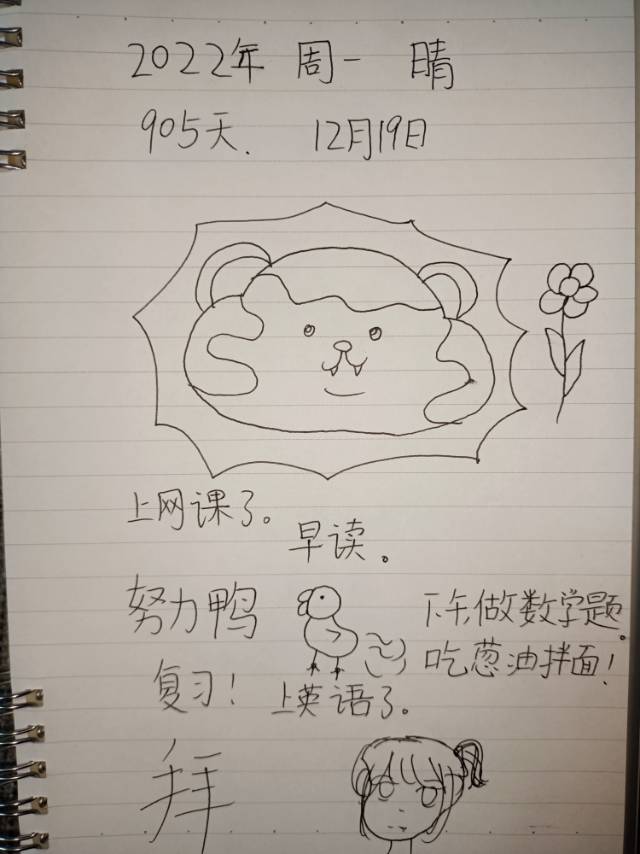 2022年 周一 晴
905天. 12月19日
上网课了。
早读。
努力鸭
下午做数学题。
吃葱油拌面!
复习!
上英语了。
拜